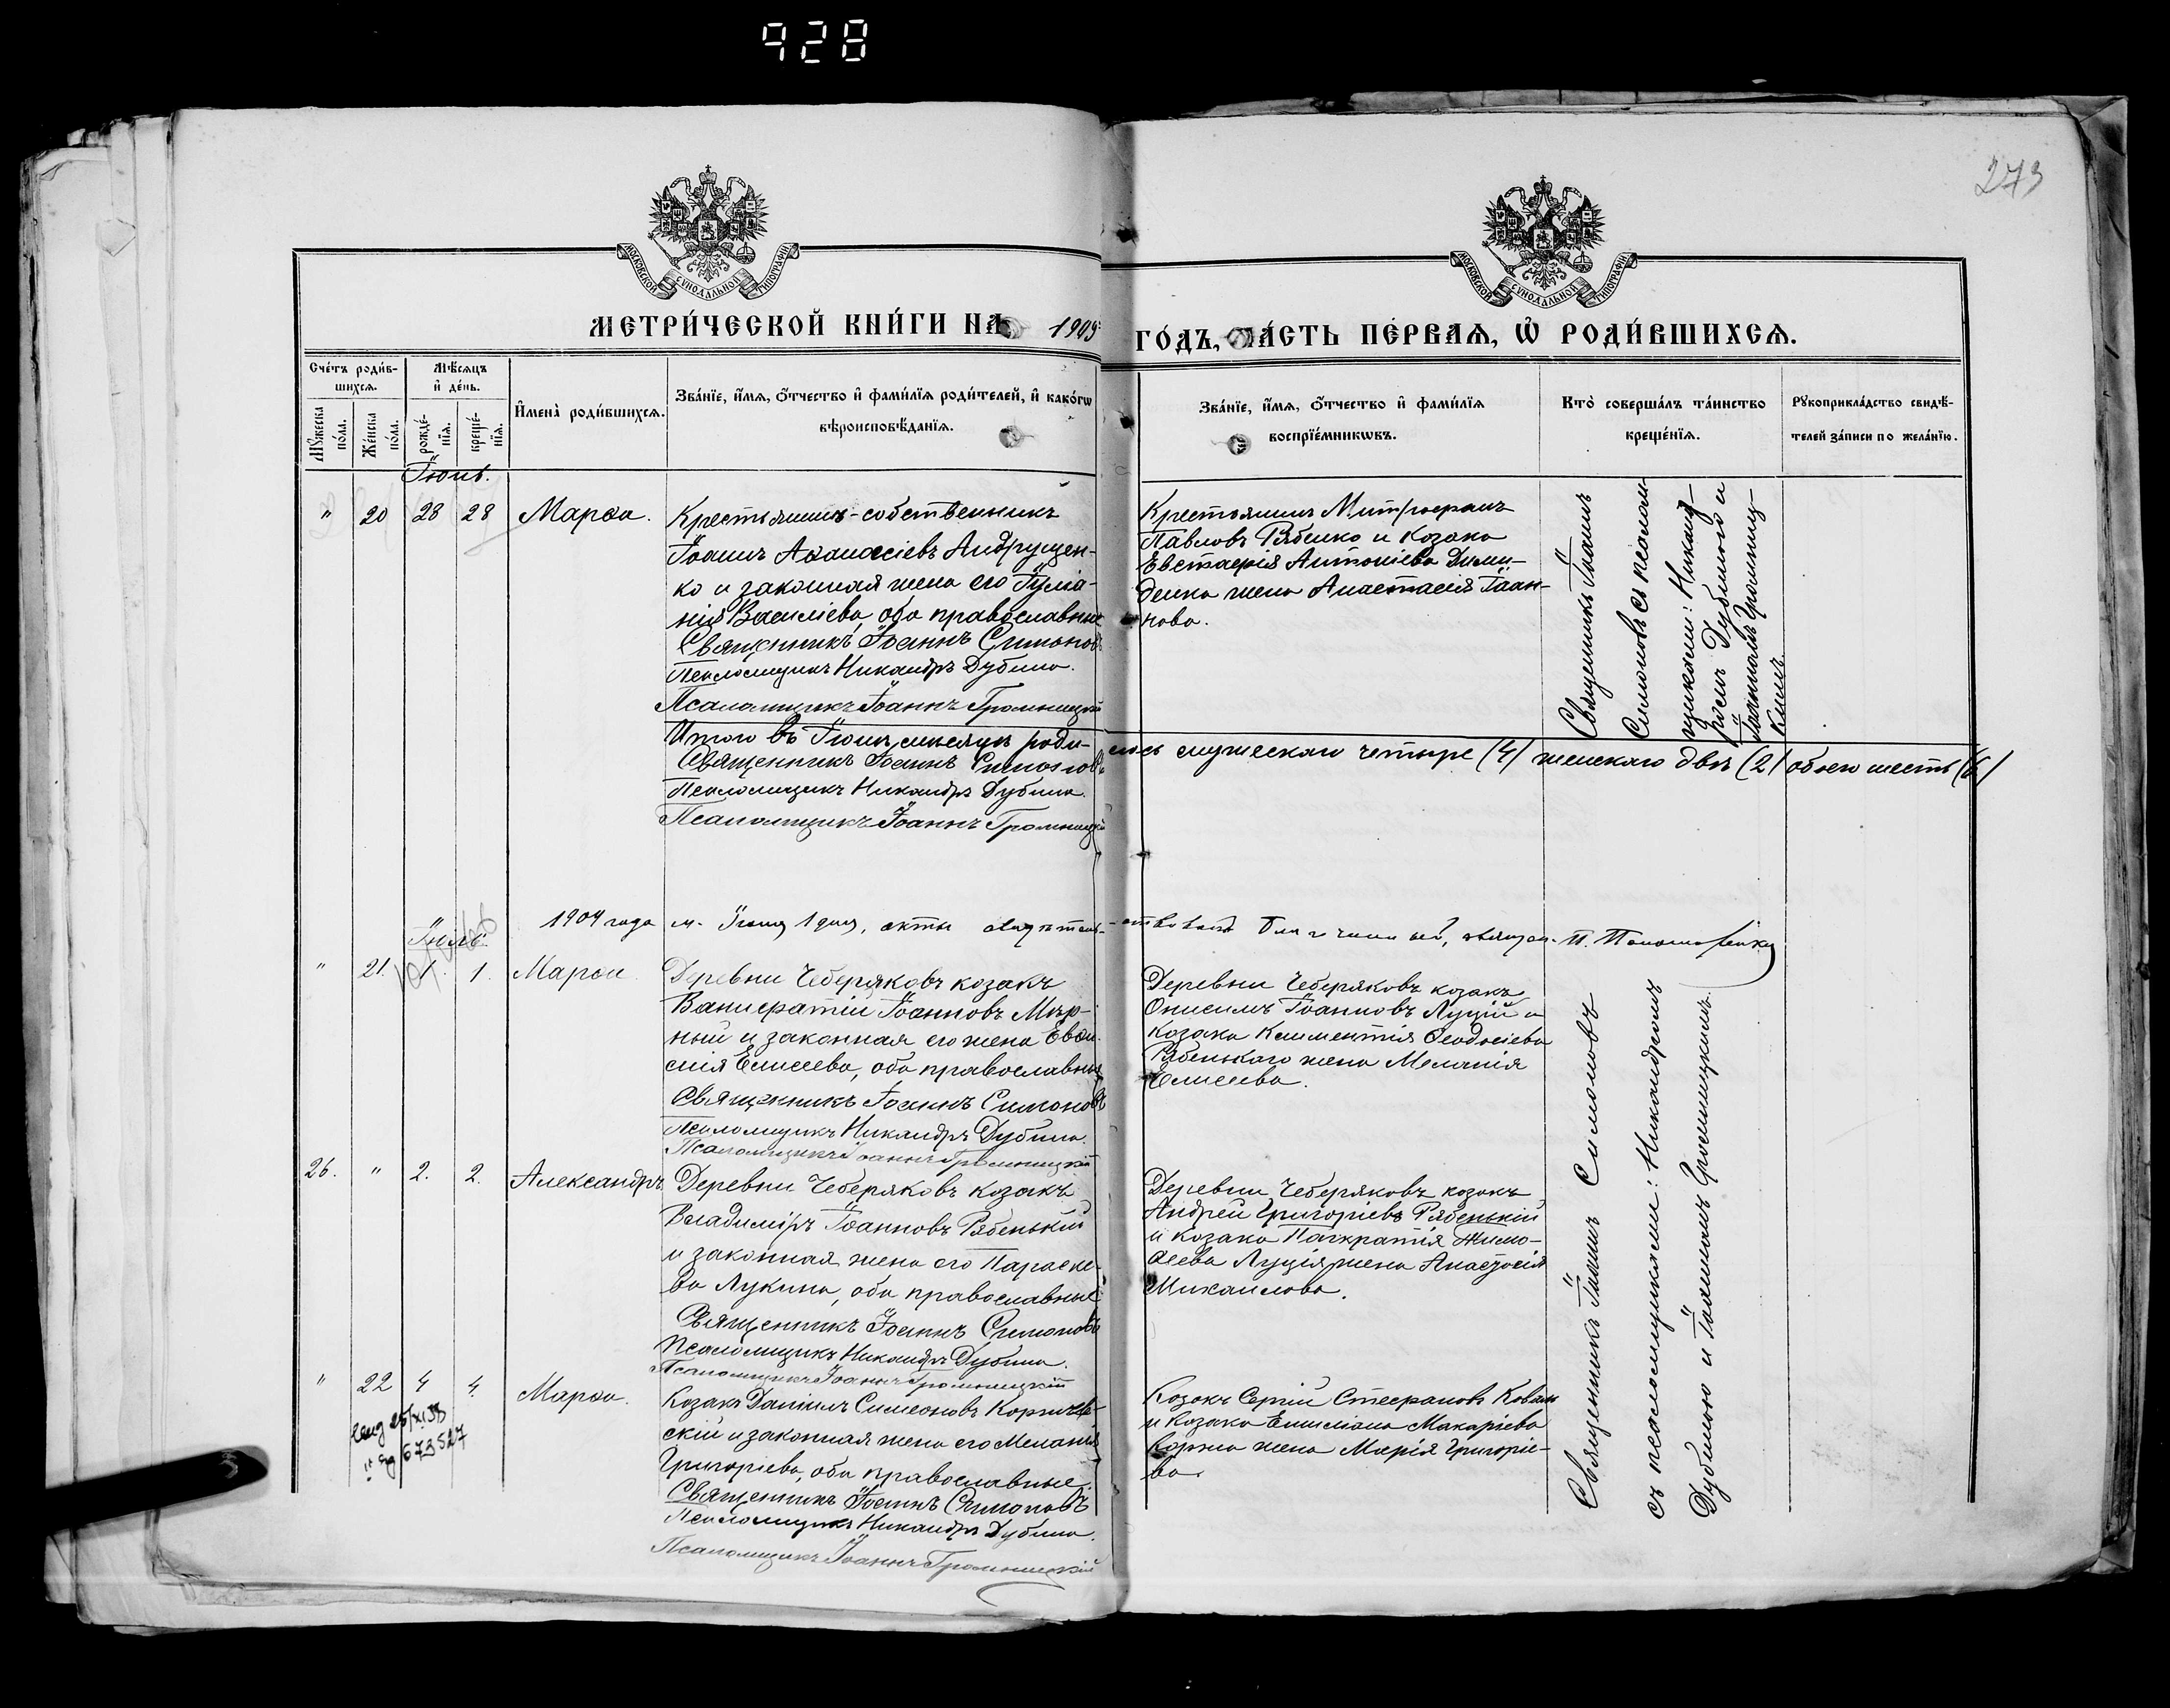 928
273
МОСКОВСКОЙ СѴНОДАЛЬНОЙ ТИПОГРАФІИ
МОСКОВСКОЙ СѴНОДАЛЬНОЙ ТИПОГРАФІИ
МЕТРИ́ЧЕСКОЙ КНИ́ГИ НА 1903
ГО́ДЪ, ЧА́СТЬ ПЕ́РВАЯ, Ѡ РОДИ́ВШИХСЯ.
Сче́тъ роди́в-
шихся.
Мꙋ́жеска по́ла.
Же́нска по́ла.
Мѣ́сяцъ и҆ де́нь.
рожде́-нїѧ.
креще́-нїѧ.
И҆мена̀ роди́вшихся.
Зва́нїе, и҆́мѧ, ѻ҆́тчество и҆ фами́лїѧ роди́телей, и҆ како́гѡ
вѣроисповѣ́данїѧ.
Зва́нїе, и҆́мѧ, ѻ҆́тчество и҆ фами́лїѧ
воспрїе́мникѡвъ.
Кто̀ соверша́лъ та́инство
креще́нїѧ.
Рꙋкоприкла́дство свидѣ́-
телей за́писи по жела́нїю.
Іюнь.
" 20 28 28 Марѳа.
Крестьянинъ-собственникъ
Іоаннъ Аѳанасіевъ Андрущен-
ко и законная жена его Іуліа-
нія Василіева, оба православные
Священникъ Іоаннъ Симоновъ
Псаломщикъ Никандръ Дубина.
Псаломщикъ Іоаннъ Громницкій
Крестьянинъ Митрофанъ
Павловъ Рябенко и козака
Евстафія Антоніева Дими-
денка жена Анастасія Іоан-
нова.
Священникъ Іоаннъ
Симоновъ съ псалом-
щиками: Никанд-
ромъ Дубиною и
Іоанномъ Громниц-
кимъ.
Итого въ Іюнѣ мѣсяцѣ роди-лось мужескаго четыре (4) женскаго двѣ (2) обоего шесть (6)
Священникъ Іоаннъ Симоновъ
Псаломщикъ Никандръ Дубина.
Псаломщикъ Іоаннъ Громницкій
1904 года м. Іюня 1 дня, акты свидѣтель-ствовалъ Благочинный, священ. П. Пономаренко
Іюль.
" 21. 1. 1. Марѳа
Деревни Чеберяковъ козакъ
Іоанновъ Мир-
ный и законная его жена Евѳи-
мія Елисеева, оба православные
Священникъ Іоаннъ Симоновъ
Псаломщикъ Никандръ Дубина.
Псаломщикъ Іоаннъ Громницкій
Деревни Чеберяковъ козакъ
Онисимъ Іоанновъ Луцій и
козака Климентія Ѳеодосіева
Рябенькаго жена Меланія
Елисеева.
26. " 2. 2. Александръ
Деревни Чеберяковъ козакъ
Владиміръ Іоанновъ Рябенькій
и законная жена его Параске-
ва Лукина, оба православные
Священникъ Іоаннъ Симоновъ
Псаломщикъ Никандръ Дубина.
Псаломщикъ Іоаннъ Громницкій
Деревни Чеберяковъ козакъ
Андрей Григоріевъ Рябенькій
и козака Панкратія Тимо-
ѳеева Луція жена Анастасія
Михаилова.
" 22 4 4. Марѳа.
Козакъ Даніилъ Симеоновъ
скій и законная жена его Меланія
Григоріева, оба православные.
Священникъ Іоаннъ Симоновъ
Псаломщикъ Никандръ Дубина.
Псаломщикъ Іоаннъ Громницкій
Козакъ Сергій Стефановъ
и козака Емиліана Макаріева
Коржа жена Марія Григоріе-
ва.
Священникъ Іоаннъ Симоновъ
съ псаломщиками: Никандромъ
Дубиною и Іоанномъ Громницкимъ.
673527